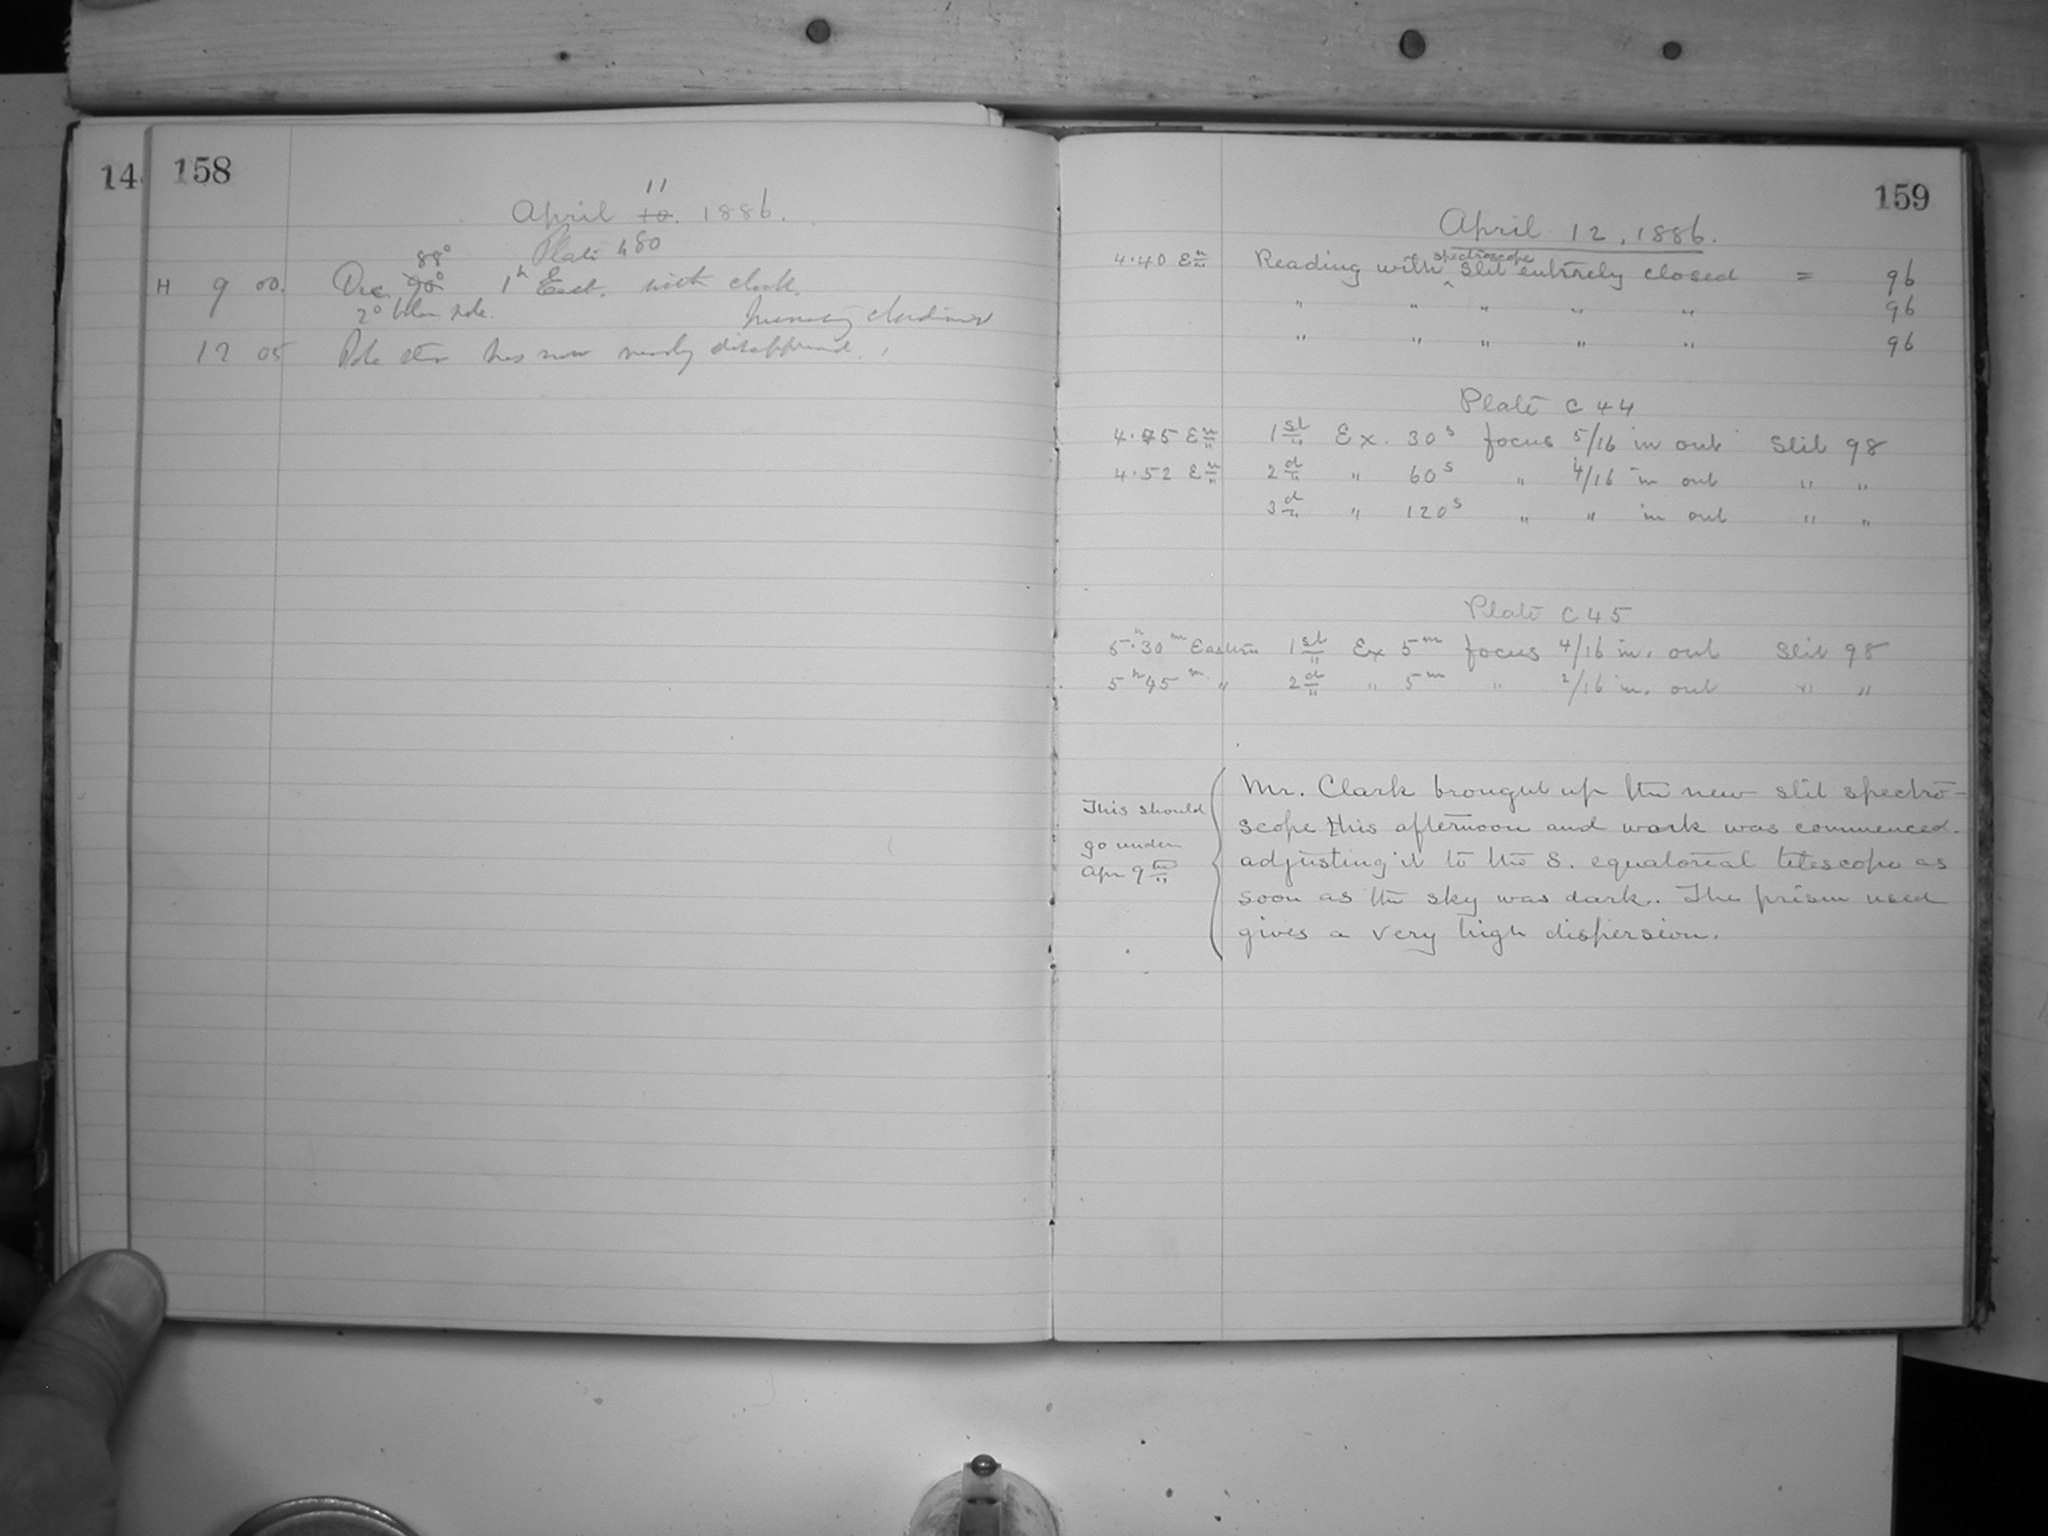 14
158
11
April 10. 1886.
Plate 480
88°
H 9 00. Dec. 90° 1h East. with clock.
2° below pole. cloudiness
12 05 Pole star has now nearly disappeared.
159
April 12, 1886.
spectroscope
4.40 En Reading with ^ slit entirely closed = 96
" " " " " 96
" " " " " 96
Plate C 44
4.45 En 1st Ex. 30s focus 5/16 in out Slit 98
4.52 En 2d " 60s " 4/16 in out " "
3d " 120s " " in out " "
Plate C 45
5h.30m Eastern 1st Ex 5m focus 4/16 in. out Slit 98
5h 45m " 2d " 5m " 2/16 in. out " "
This should
go under
Apr 9th
Mr. Clark brought up the new slit spectro-
scope this afternoon and work was commenced
adjusting it to the S. equatorial telescope as
soon as the sky was dark. The prism used
gives a very high dispersion.